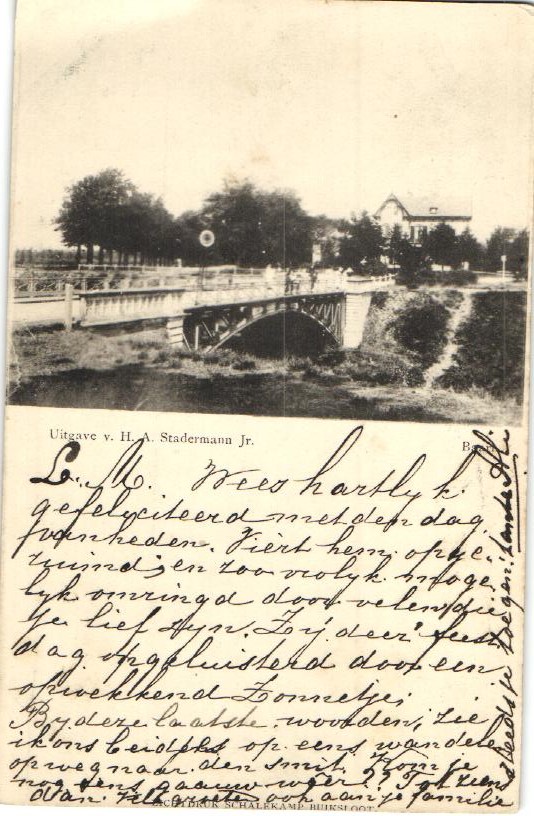 Uitgave v. H. A. Stadermann Jr.
L. M. Wees hartlyk
gefeliciteerd met den dag
van heden. Viert hem opge-
ruimd, en zoo vrolyk moge-
lyk omringd door velen die
je lief zyn. Zij deez' feest
dag opgeluisterd door een
opwekkend Zonnetje,
By deze laatste woorden, zie
ik ons beidjes op eens wandelen
op weg naar den smit. Kom je
nog eens gaauw weer?? Tot ziens
dan. ook aan je familie
LICHTDRUK SCHALEKAMP BUIKSLOOT.